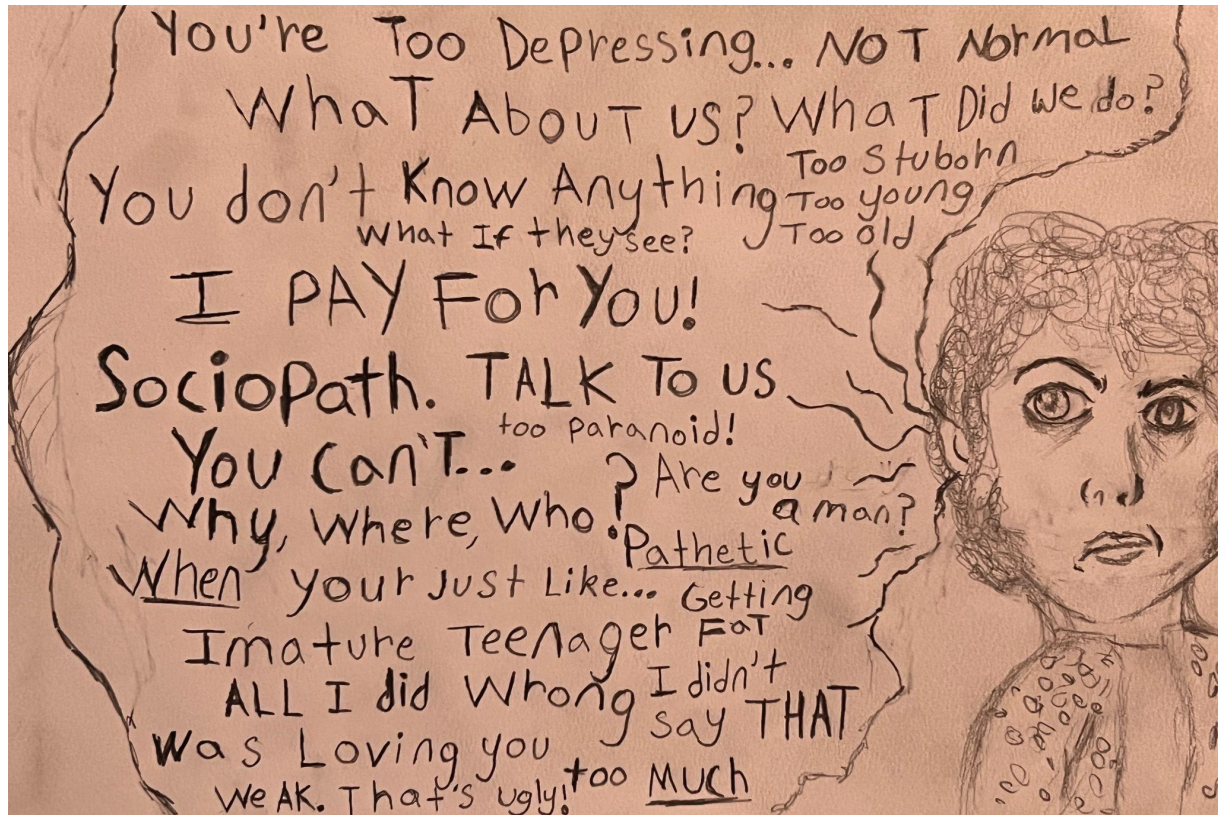 You're Too Depressing... NOT Normal
What About us? What Did we do?
You don't Know Anything
Too Stubohn
Too young
Too old
What If they see?
I PAY For You!
Sociopath. TALK To us
too paranoid!
You Can't...
Why, Where, Who?
Are you
a man?
Pathetic
When your Just Like...
Getting
Fat
Imature Teenager
ALL I did Wrong
I didn't
say THAT
Was Loving you
too Much
Weak. That's ugly!